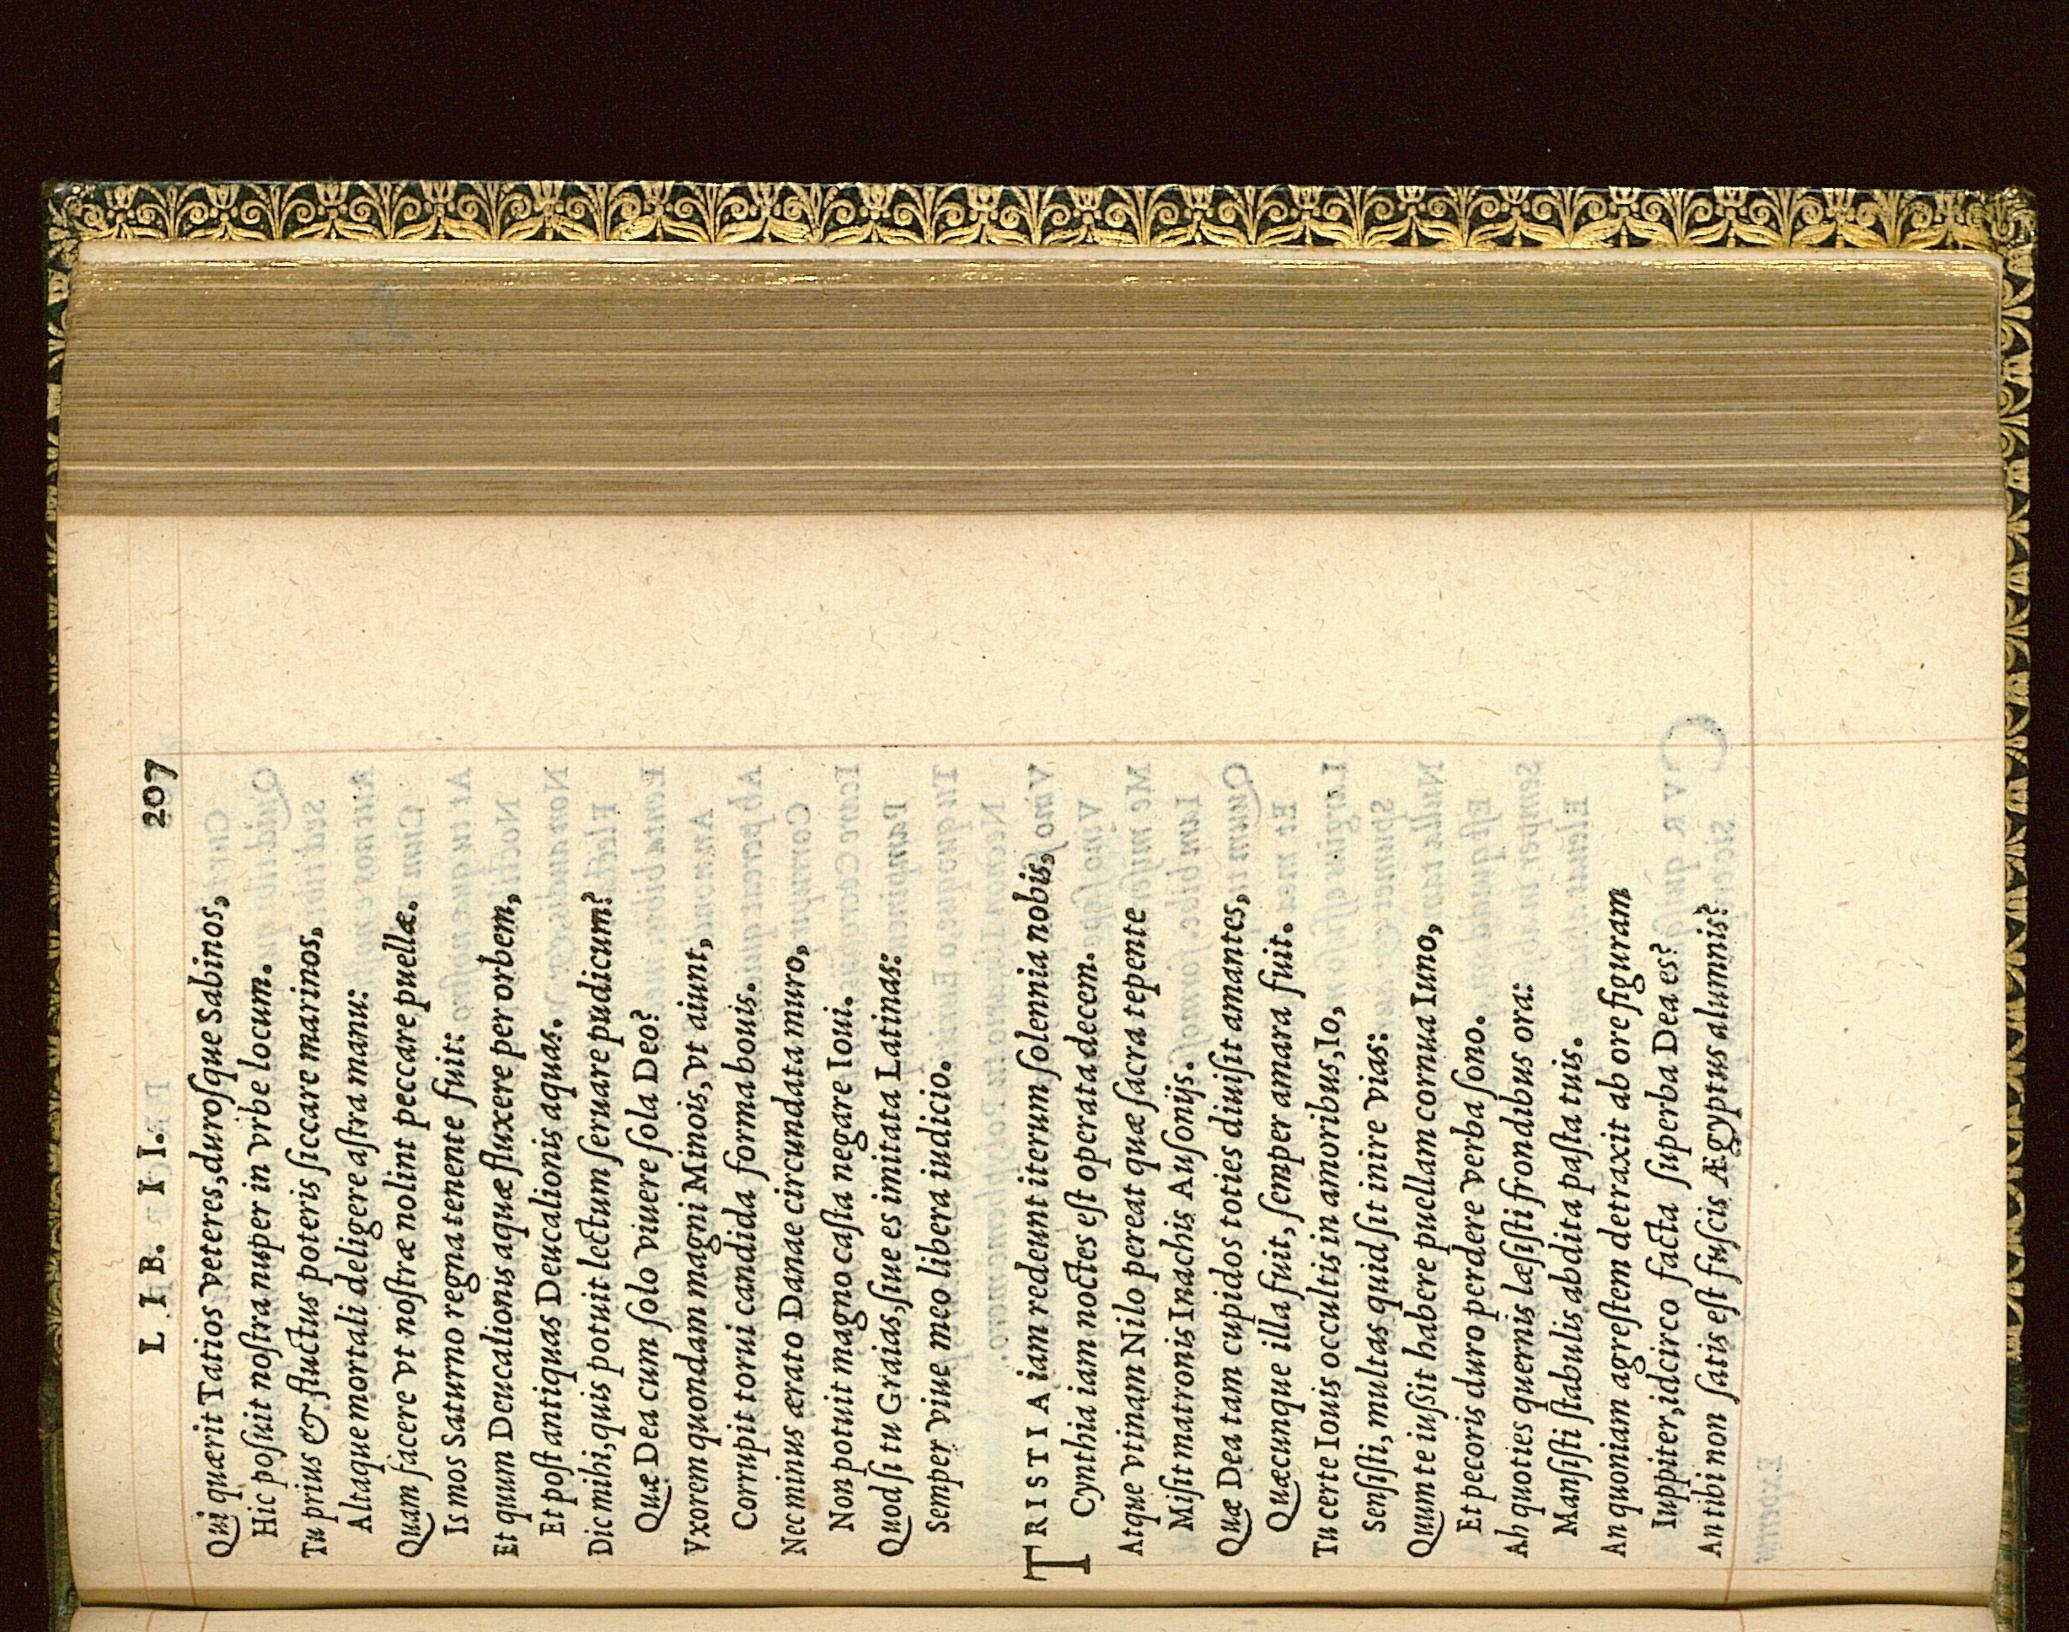 L I B. I I. 207
Qui quærit Tatios veteres, duroſque Sabinos,
Hic poſuit noſtra nuper in vrbe locum.
Tu prius & fluctus poteris ſiccare marinos,
Altaque mortali deligere aſtra manu:
Quam facere vt noſtræ nolint peccare puellæ.
Is mos Saturno regna tenente fuit:
Et quum Deucalionis aquæ fluxere per orbem,
Et poſt antiquas Deucalionis aquas.
Dic mihi, quis potuit lectum ſeruare pudicum?
Quæ Dea cum ſolo viuere ſola Deo?
Vxorem quondam magni Minois, vt aiunt,
Corrupit torui candida forma bouis.
Nec minus ærato Danae circundata muro,
Non potuit magno caſta negare Ioui.
Quod ſi tu Graias, ſiue es imitata Latinas:
Semper viue meo libera iudicio.
TRISTIA iam redeunt iterum ſolennia nobis,
Cynthia iam noctes eſt operata decem.
Atque vtinam Nilo pereat quæ ſacra tepente
Miſit matronis Inachis Auſonijs.
Quæ Dea tam cupidos toties diuiſit amantes,
Quæcunque illa fuit, ſemper amara fuit.
Tu certe Iouis occultis in amoribus, Io,
Senſiſti, multas quid ſit inire vias:
Quum te iußit habere puellam cornua Iuno,
Et pecoris duro perdere verba ſono.
Ah quoties quernis læſiſti frondibus ora:
Manſiſti ſtabulis abdita paſta tuis.
An quoniam agreſtem detraxit ab ore figuram
Iuppiter, idcirco facta ſuperba Dea es?
An tibi non ſatis eſt fuſcis Ægyptus alumnis?